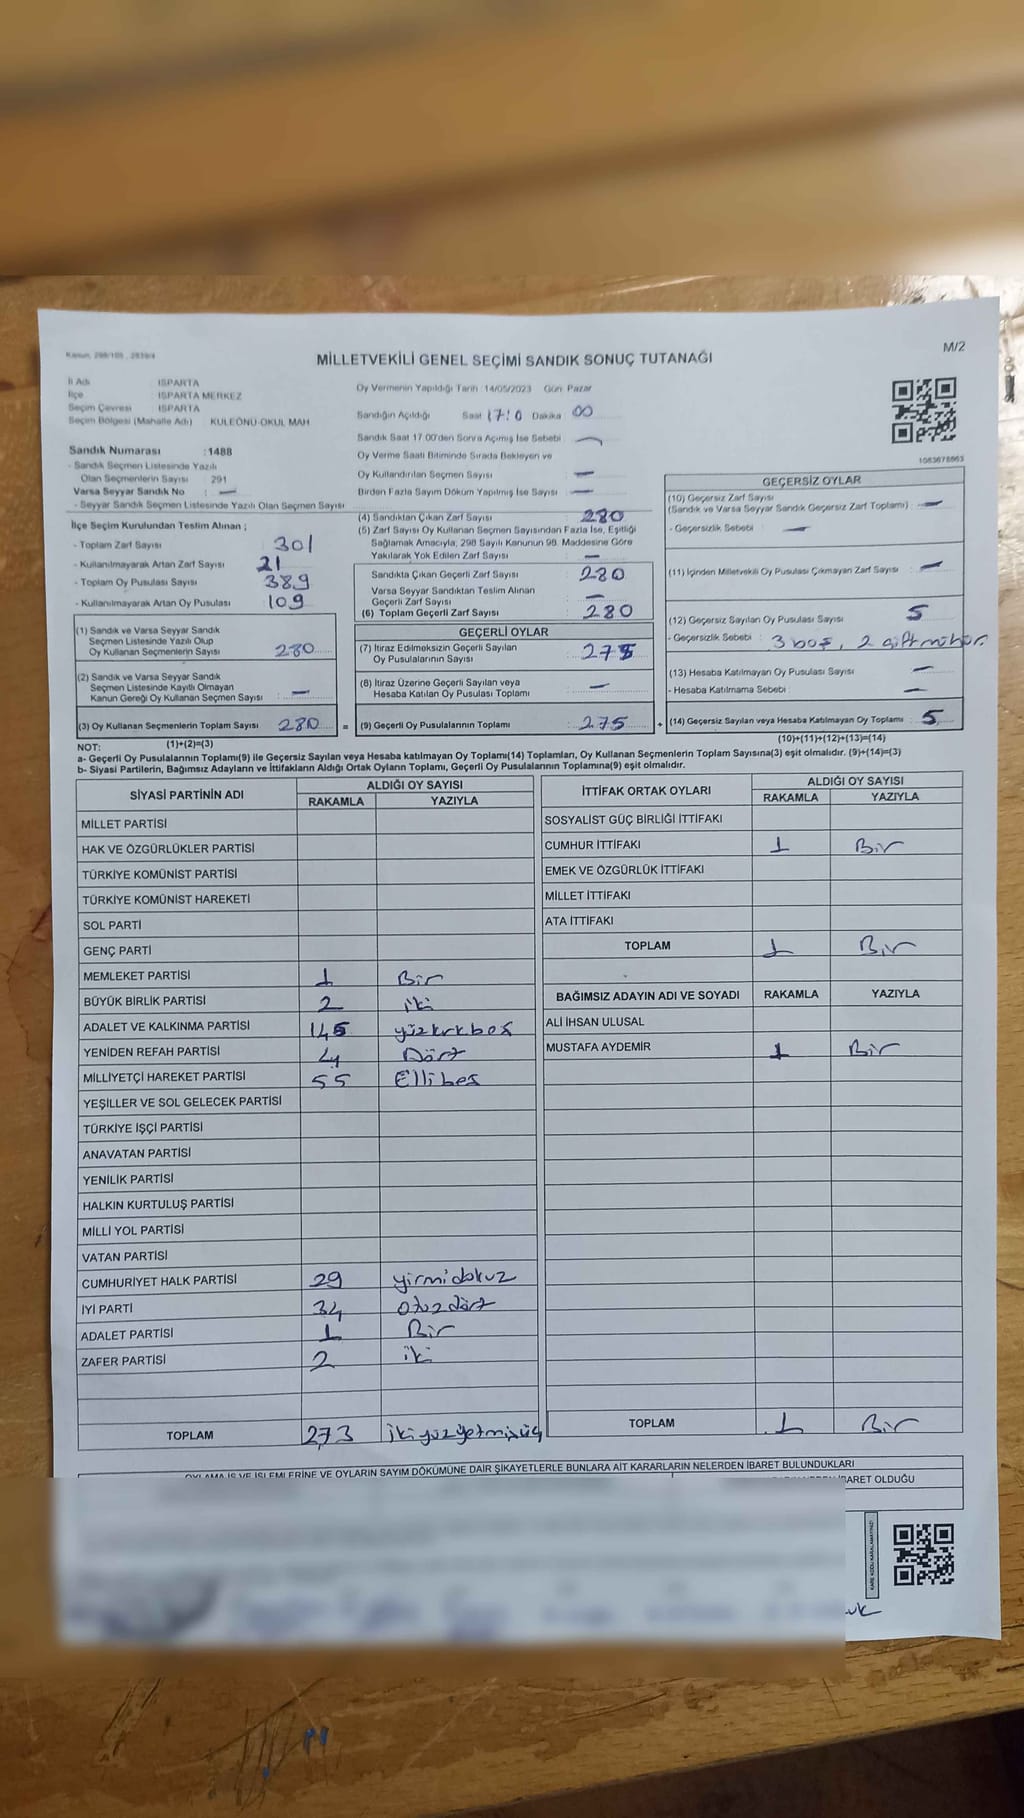 Kanun, 298/105 , 2839/4
MİLLETVEKİLİ GENEL SEÇİMİ SANDIK SONUÇ TUTANAĞI
M/2
İl Adı : ISPARTA
İlçe : ISPARTA MERKEZ
Seçim Çevresi : ISPARTA
Seçim Bölgesi (Mahalle Adı) : KULEÖNÜ-OKUL MAH
Sandık Numarası : 1488
- Sandık Seçmen Listesinde Yazılı
Olan Seçmenlerin Sayısı : 291
Varsa Seyyar Sandık No : —
- Seyyar Sandık Seçmen Listesinde Yazılı Olan Seçmen Sayısı
Oy Vermenin Yapıldığı Tarih 14/05/2023 Gün Pazar
Sandığın Açıldığı Saat 17:0 Dakika 00
Sandık Saat 17.00'den Sonra Açımış İse Sebebi —
Oy Verme Saati Bitiminde Sırada Bekleyen ve
Oy Kullandırılan Seçmen Sayısı —
Birden Fazla Sayım Döküm Yapılmış İse Sayısı —
1083678863
İlçe Seçim Kurulundan Teslim Alınan ;
- Toplam Zarf Sayısı : 301
- Kullanılmayarak Artan Zarf Sayısı : 21
- Toplam Oy Pusulası Sayısı : 389
- Kullanılmayarak Artan Oy Pusulası : 109
(1) Sandık ve Varsa Seyyar Sandık
Seçmen Listesinde Yazılı Olup
Oy Kullanan Seçmenlerin Sayısı : 280
(2) Sandık ve Varsa Seyyar Sandık
Seçmen Listesinde Kayıtlı Olmayan
Kanun Gereği Oy Kullanan Seçmen Sayısı : —
(3) Oy Kullanan Seçmenlerin Toplam Sayısı : 280 =
(1)+(2)=(3)
(4) Sandıktan Çıkan Zarf Sayısı : 280
(5) Zarf Sayısı Oy Kullanan Seçmen Sayısından Fazla İse, Eşitliği
Sağlamak Amacıyla, 298 Sayılı Kanunun 98. Maddesine Göre
Yakılarak Yok Edilen Zarf Sayısı : —
Sandıkta Çıkan Geçerli Zarf Sayısı : 280
Varsa Seyyar Sandıktan Teslim Alınan
Geçerli Zarf Sayısı : —
(6) Toplam Geçerli Zarf Sayısı : 280
GEÇERLİ OYLAR
(7) İtiraz Edilmeksizin Geçerli Sayılan
Oy Pusulalarının Sayısı : 275
(8) İtiraz Üzerine Geçerli Sayılan veya
Hesaba Katılan Oy Pusulası Toplamı : —
(9) Geçerli Oy Pusulalarının Toplamı : 275 +
GEÇERSİZ OYLAR
(10) Geçersiz Zarf Sayısı
(Sandık ve Varsa Seyyar Sandık Geçersiz Zarf Toplamı) : —
- Geçersizlik Sebebi : —
(11) İçinden Milletvekili Oy Pusulası Çıkmayan Zarf Sayısı : —
(12) Geçersiz Sayılan Oy Pusulası Sayısı : 5
- Geçersizlik Sebebi : 3 boş, 2 çift mühür.
(13) Hesaba Katılmayan Oy Pusulası Sayısı : —
- Hesaba Katılmama Sebebi : —
(14) Geçersiz Sayılan veya Hesaba Katılmayan Oy Toplamı : 5
(10)+(11)+(12)+(13)=(14)
NOT:
a- Geçerli Oy Pusulalarının Toplamı(9) ile Geçersiz Sayılan veya Hesaba katılmayan Oy Toplamı(14) Toplamları, Oy Kullanan Seçmenlerin Toplam Sayısına(3) eşit olmalıdır. (9)+(14)=(3)
b- Siyasi Partilerin, Bağımsız Adayların ve İttifakların Aldığı Ortak Oyların Toplamı, Geçerli Oy Pusulalarının Toplamına(9) eşit olmalıdır.
SİYASİ PARTİNİN ADI
ALDIĞI OY SAYISI
RAKAMLA YAZIYLA
MİLLET PARTİSİ
HAK VE ÖZGÜRLÜKLER PARTİSİ
TÜRKİYE KOMÜNİST PARTİSİ
TÜRKİYE KOMÜNİST HAREKETİ
SOL PARTİ
GENÇ PARTİ
MEMLEKET PARTİSİ 1 Bir
BÜYÜK BİRLİK PARTİSİ 2 iki
ADALET VE KALKINMA PARTİSİ 145 yüzkırkbeş
YENİDEN REFAH PARTİSİ 4 Dört
MİLLİYETÇİ HAREKET PARTİSİ 55 Ellibeş
YEŞİLLER VE SOL GELECEK PARTİSİ
TÜRKİYE İŞÇİ PARTİSİ
ANAVATAN PARTİSİ
YENİLİK PARTİSİ
HALKIN KURTULUŞ PARTİSİ
MİLLİ YOL PARTİSİ
VATAN PARTİSİ
CUMHURİYET HALK PARTİSİ 29 yirmidokuz
İYİ PARTİ 34 otuzdört
ADALET PARTİSİ 1 Bir
ZAFER PARTİSİ 2 iki
TOPLAM 273 ikiyüzyetmişüç
İTTİFAK ORTAK OYLARI
ALDIĞI OY SAYISI
RAKAMLA YAZIYLA
SOSYALİST GÜÇ BİRLİĞİ İTTİFAKI
CUMHUR İTTİFAKI 1 Bir
EMEK VE ÖZGÜRLÜK İTTİFAKI
MİLLET İTTİFAKI
ATA İTTİFAKI
TOPLAM 1 Bir
BAĞIMSIZ ADAYIN ADI VE SOYADI RAKAMLA YAZIYLA
ALİ İHSAN ULUSAL
MUSTAFA AYDEMİR 1 Bir
TOPLAM 1 Bir
OYLAMA İŞ VE İŞLEMLERİNE VE OYLARIN SAYIM DÖKÜMÜNE DAİR ŞİKAYETLERLE BUNLARA AİT KARARLARIN NELERDEN İBARET BULUNDUKLARI
İBARET OLDUĞU
KARE KODU KARALAMAYINIZ!